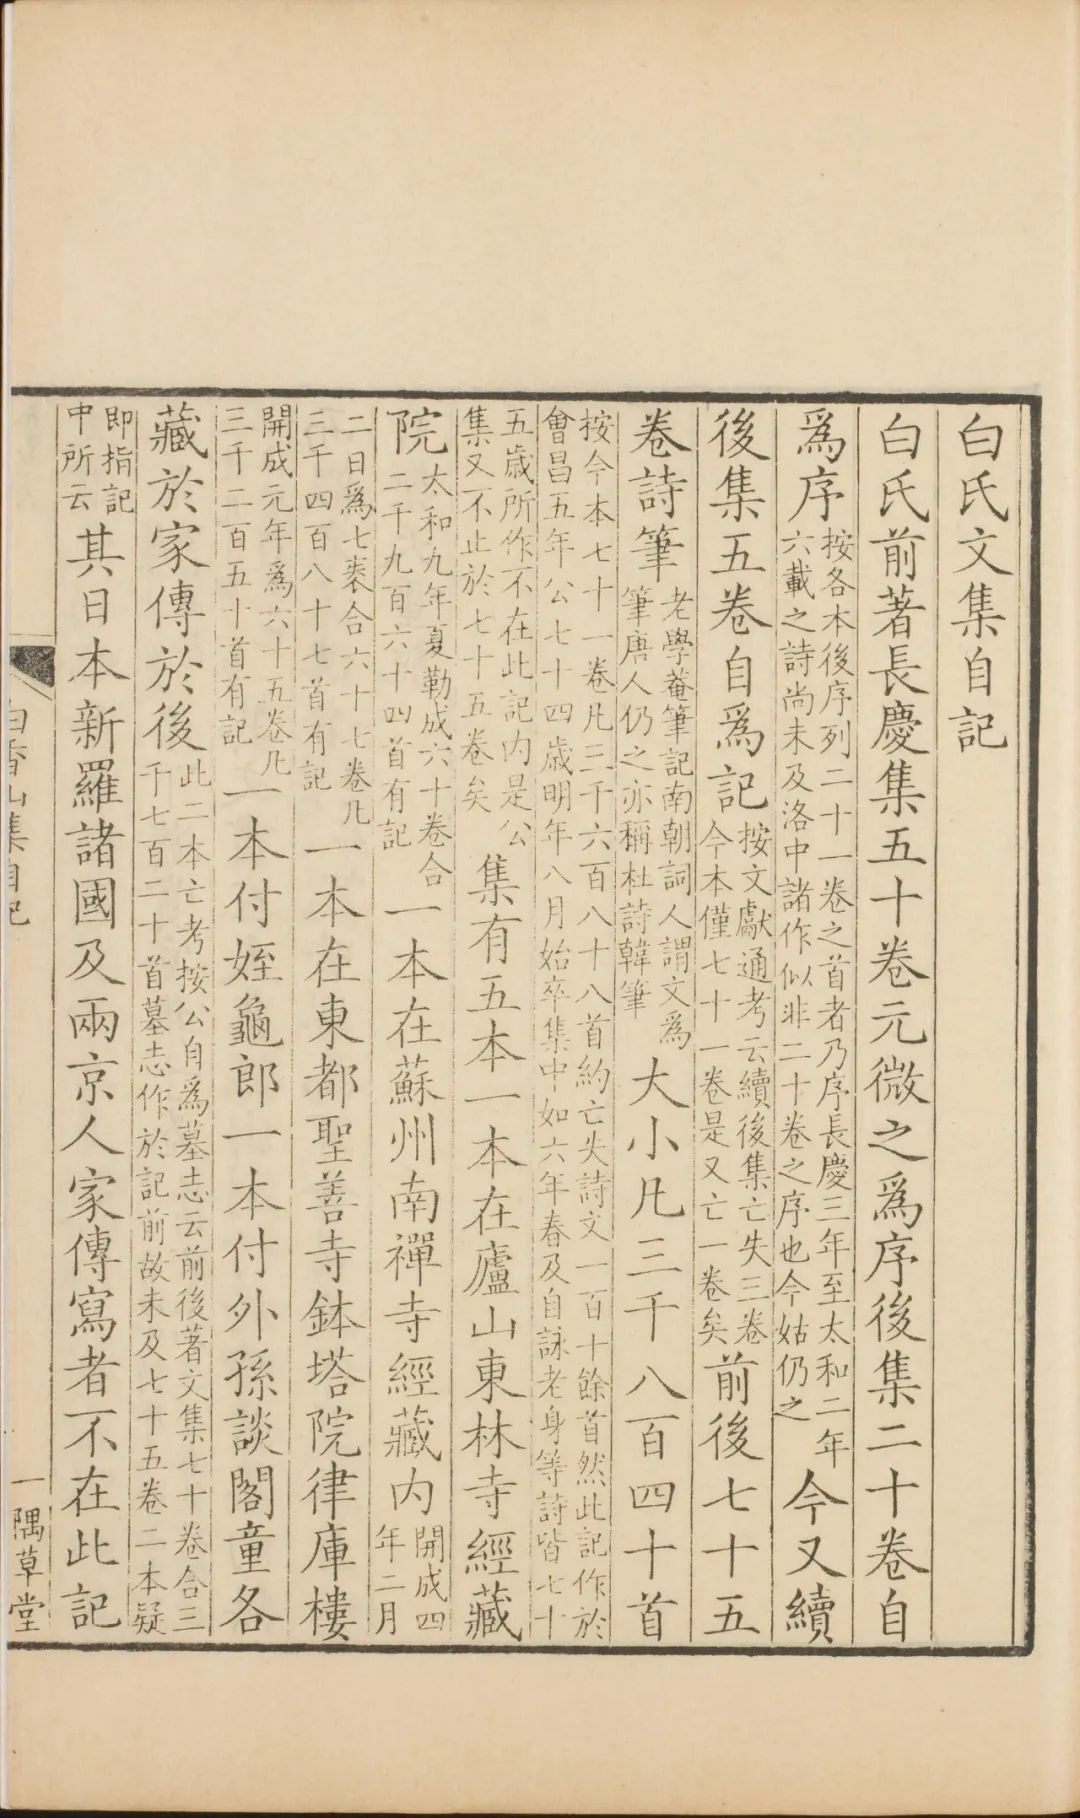 白氏文集自記
白氏前著長慶集五十卷元微之爲序後集二十卷自
爲序
按各本後序列二十一卷之首者乃序長慶三年至太和二年
六載之詩尚未及洛中諸作似非二十卷之序也今姑仍之
今又續
後集五卷自爲記
按文獻通考云續後集亡失三卷
今本僅七十一卷是又亡一卷矣
前後七十五
卷詩筆
老學菴筆記南朝詞人謂文爲
筆唐人仍之亦稱杜詩韓筆
大小凡三千八百四十首
按今本七十一卷凡三千六百八十八首約亡失詩文一百十餘首然此記作於
會昌五年公七十四歲明年八月始卒集中如六年春及自詠老身等詩皆七十
五歲所作不在此記内是公
集又不止於七十五卷矣
集有五本一本在廬山東林寺經藏
院
太和九年夏勒成六十卷合
二千九百六十四首有記
一本在蘇州南禪寺經藏内
開成四
年二月
二日爲七袠合六十七卷凡
三千四百八十七首有記
一本在東都聖善寺鉢塔院律庫樓
開成元年爲六十五卷凡
三千二百五十首有記
一本付姪龜郎一本付外孫談閣童各
藏於家傳於後
此二本亡考按公自爲墓志云前後著文集七十卷合三
千七百二十首墓志作於記前故未及七十五卷二本疑
即指記
中所云
其日本新羅諸國及兩京人家傳寫者不在此記
白香山集自記
一隅草堂